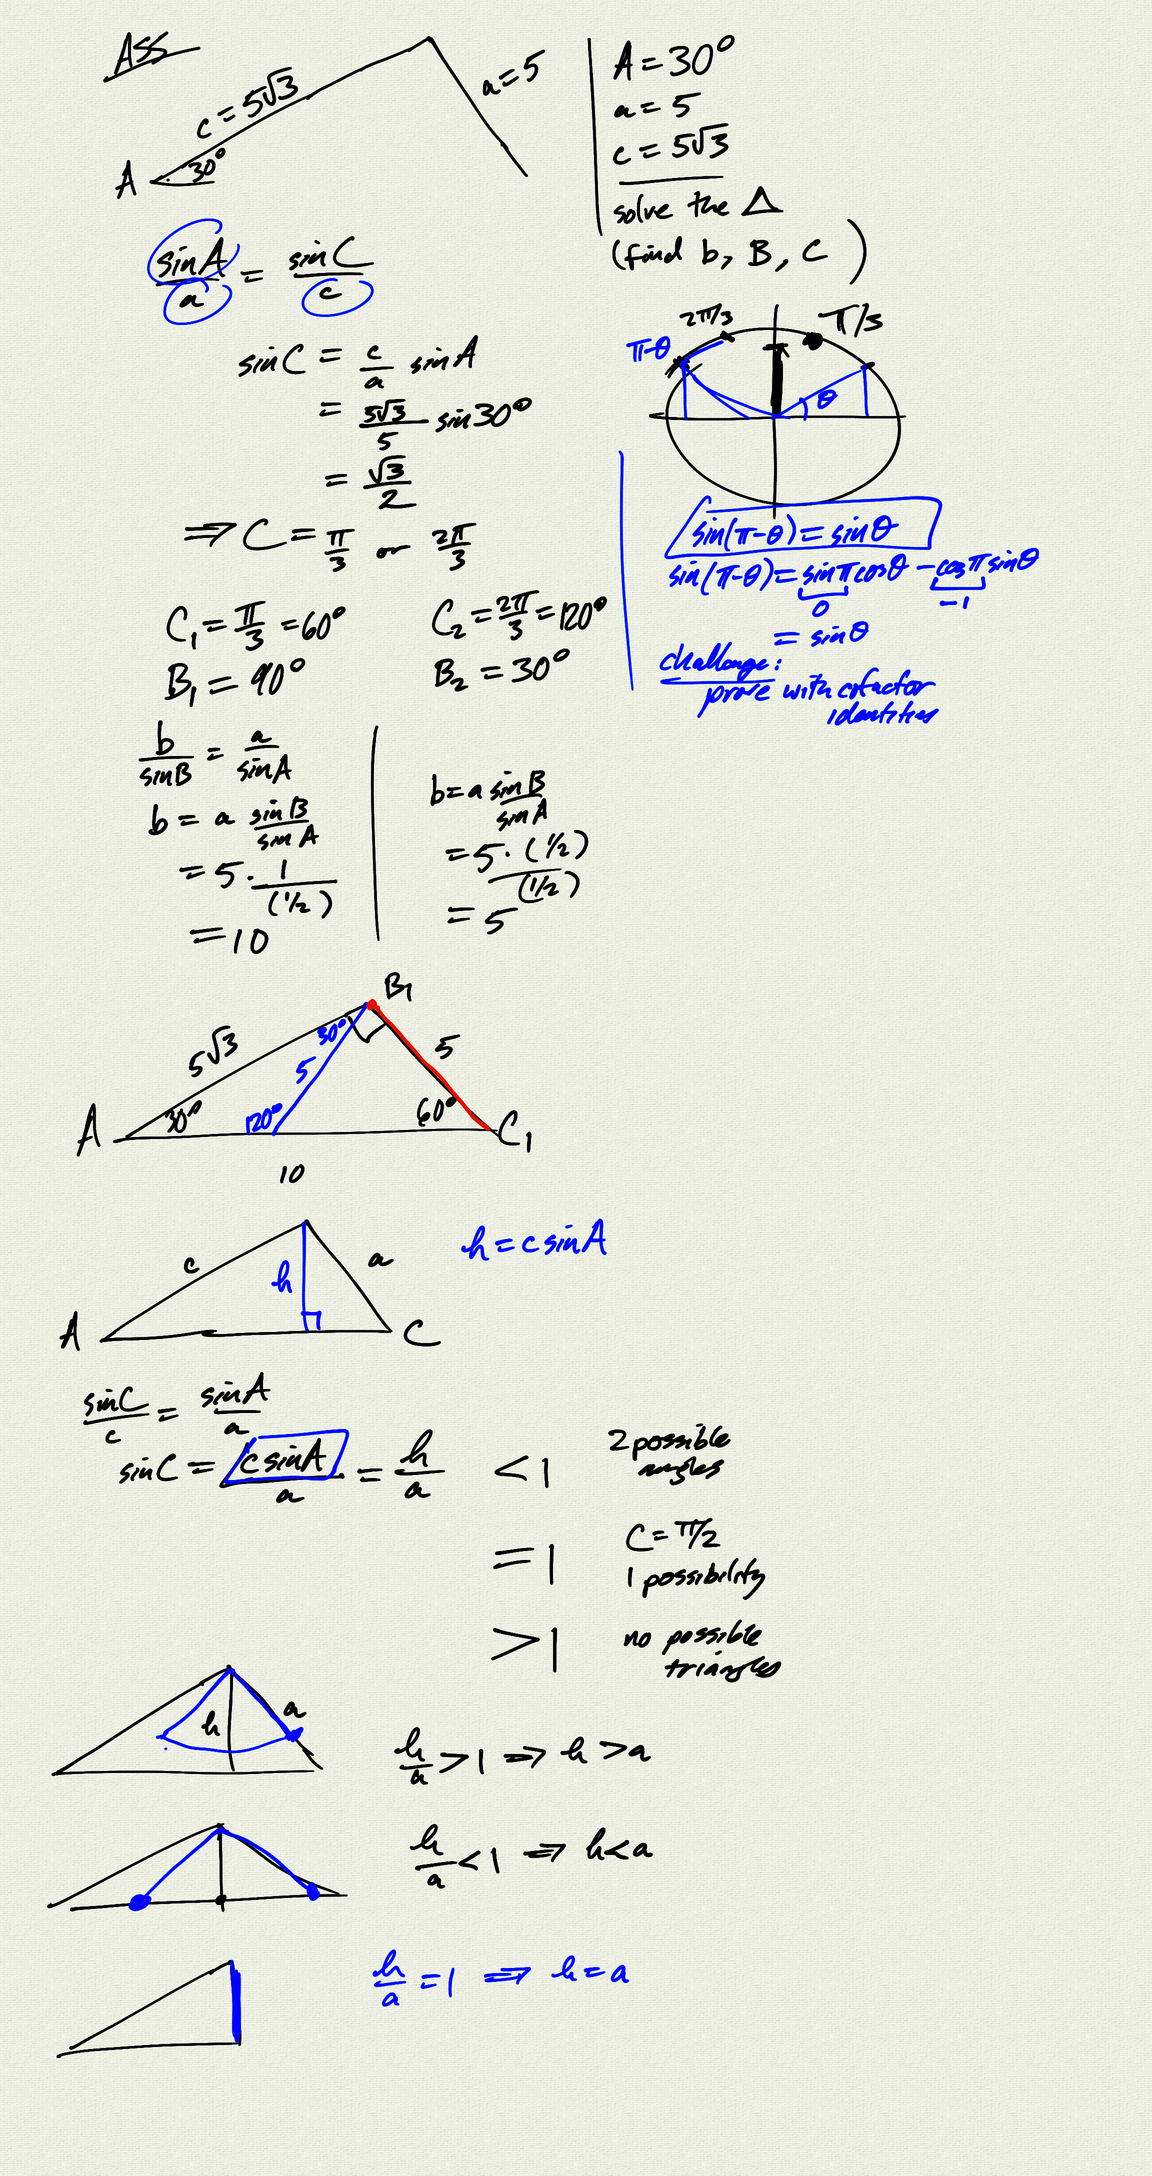 ASS
c = 5√3
a = 5
A
30°
A = 30°
a = 5
c = 5√3
solve the △
(find b, B, C )
sinA/a = sinC/c
sinC = c/a sinA
= 5√3/5 sin30°
= √3/2
⇒ C = π/3 or 2π/3
2π/3
π/3
π-θ
θ
sin(π-θ) = sinθ
sin(π-θ) = sinπ cosθ - cosπ sinθ
0
-1
= sinθ
challenge:
prove with cofactor
identities
C₁ = π/3 = 60°
B₁ = 90°
C₂ = 2π/3 = 120°
B₂ = 30°
b/sinB = a/sinA
b = a sinB/sinA
= 5 · 1/(1/2)
= 10
b = a sinB/sinA
= 5 · (1/2)/(1/2)
= 5
B₁
5√3
30°
5
5
A
30°
120°
60°
C₁
10
c
h
a
A
C
h = c sinA
sinC/c = sinA/a
sinC = c sinA/a = h/a < 1
2 possible
angles
= 1
C = π/2
1 possibility
> 1
no possible
triangles
h
a
h/a > 1 ⇒ h > a
h/a < 1 ⇒ h < a
h/a = 1 ⇒ h = a